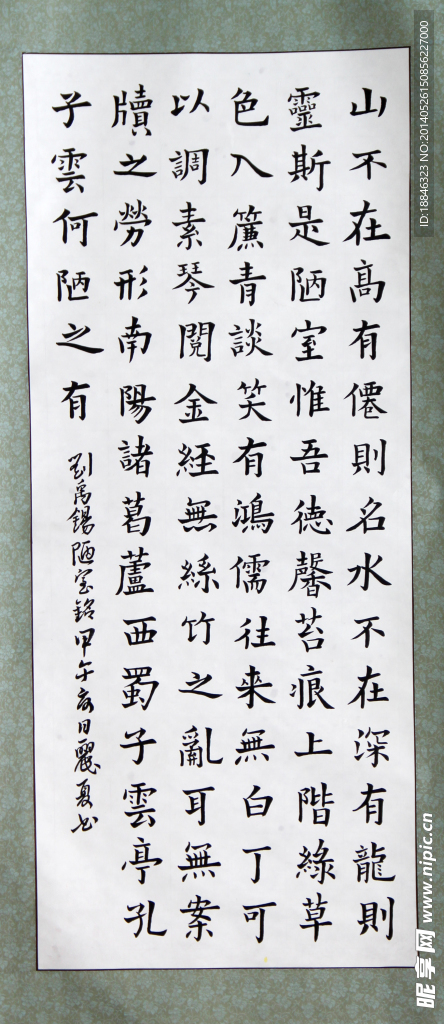 山不在髙有僊則名水不在深有龍則
靈斯是陋室惟吾徳馨苔痕上階綠草
色入簾青談笑有鴻儒往来無白丁可
以調素琴閱金経無絲竹之亂耳無案
牘之勞形南陽諸葛蘆西蜀子雲亭孔
子雲何陋之有
劉禹錫陋室銘甲午日麗夏书
ID:18846323 NO:20140526150856227000
昵享网 www.nipic.cn